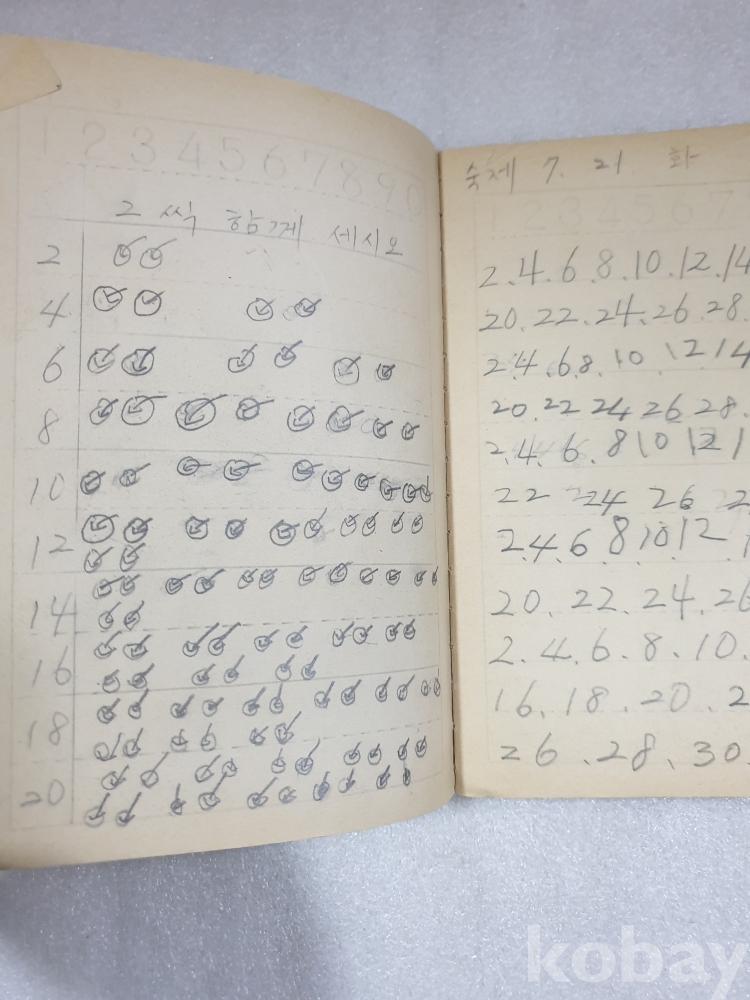 1 2 3 4 5 6 7 8 9 0
2 씩 함께 세시오
2
4
6
8
10
12
14
16
18
20
숙제 7. 21 화
1 2 3 4 5 6 7
2.4.6.8.10.12.14
20.22.24.26.28.
2.4.6.8.10.12 14
20 22 24 26 28.
2.4.6.8 10 12 1
22 24 26 2
2.4.6 8 10 12 1
20.22.24.26
2.4.6.8.10.
16.18.20.2
26.28.30.
kobay